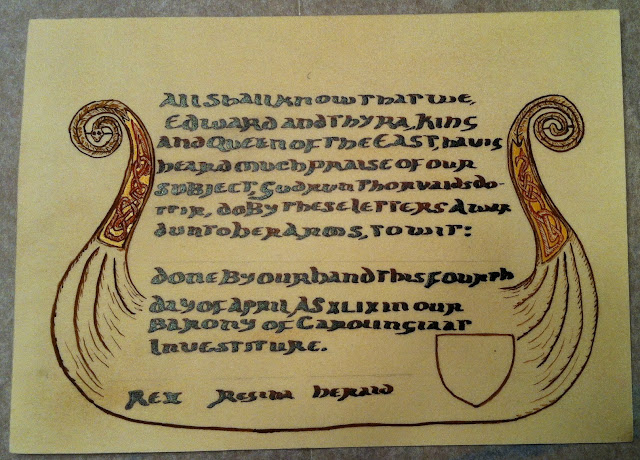 All shall know that we,
Edward and Thyra, King
and Queen of the East, havig
heard much praise of our
subject, Gudrun Thorvaldsdo-
ttir, do by these letters awar
d unto her Arms, to wit:
done by our hand this fourth
day of April, AS XLIX in our
Barony of Carolingia at
Investiture.
Rex Regina herald